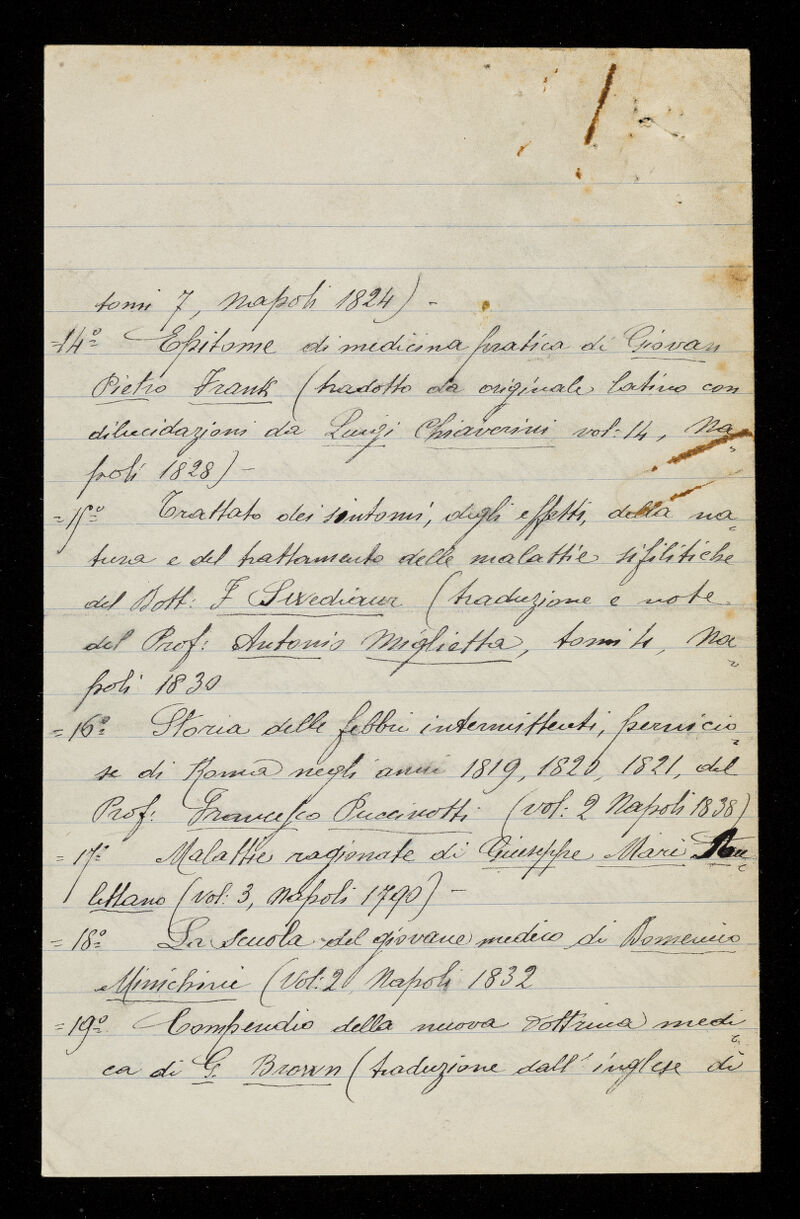 tomi 7, Napoli 1824) -
=14º= Epitome di medicina pratica di Giovan
Pietro Frank (tradotto da originale latino con
dilucidazioni da Luigi Chiaverini vol: 14, Na=
poli 1828) -
=15º= Trattato dei sintomi, degli effetti, della na=
tura e del trattamento delle malattie sifilitiche
del Dott: F Swediaur (traduzione e note
del Prof: Antonio Miglietta, tomi 4, Na=
poli 1830
=16º= Storia delle febbri intermittenti, pernicio=
se di Roma negli anni 1819, 1820, 1821, del
Prof: Francesco Puccinotti (vol: 2 Napoli 1838)
=17º= Malattie ragionate di Giuseppe Mari
lettano (vol: 3, Napoli 1790) -
=18º= La scuola del giovane medico di Domenico
Minichini (vol: 2 Napoli 1832
=19º= Compendio della nuova dottrina medi=
ca di G. Brown (traduzione dall' inglese di